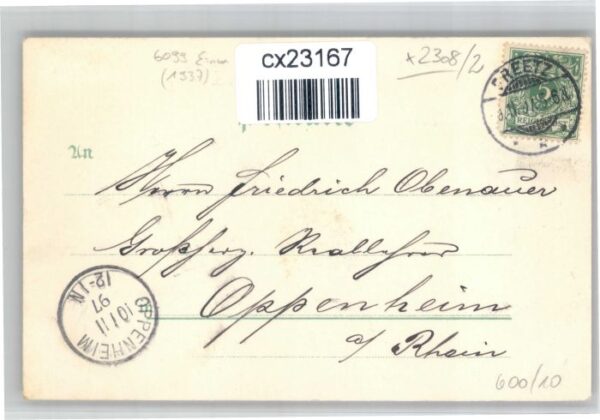 cx23167
x2308/2
(1937)
PREETZ
5
REICHSPOST
An
Herrn Friedrich Obenauer
Großherzg. Reallehrer
Oppenheim
a/ Rhein
OPPENHEIM
10 / 11
97
12-1N
600/10